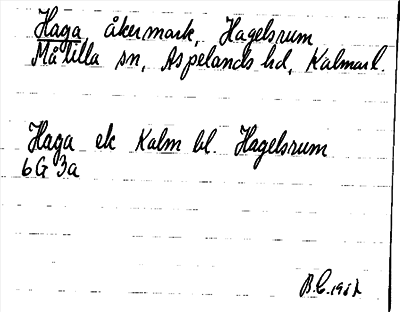 Haga, åkermark, Hagelsrum
Målilla sn, Aspelands hd, Kalmar l.
Haga ek Kalm bl. Hagelsrum
6G 3a
B.C.